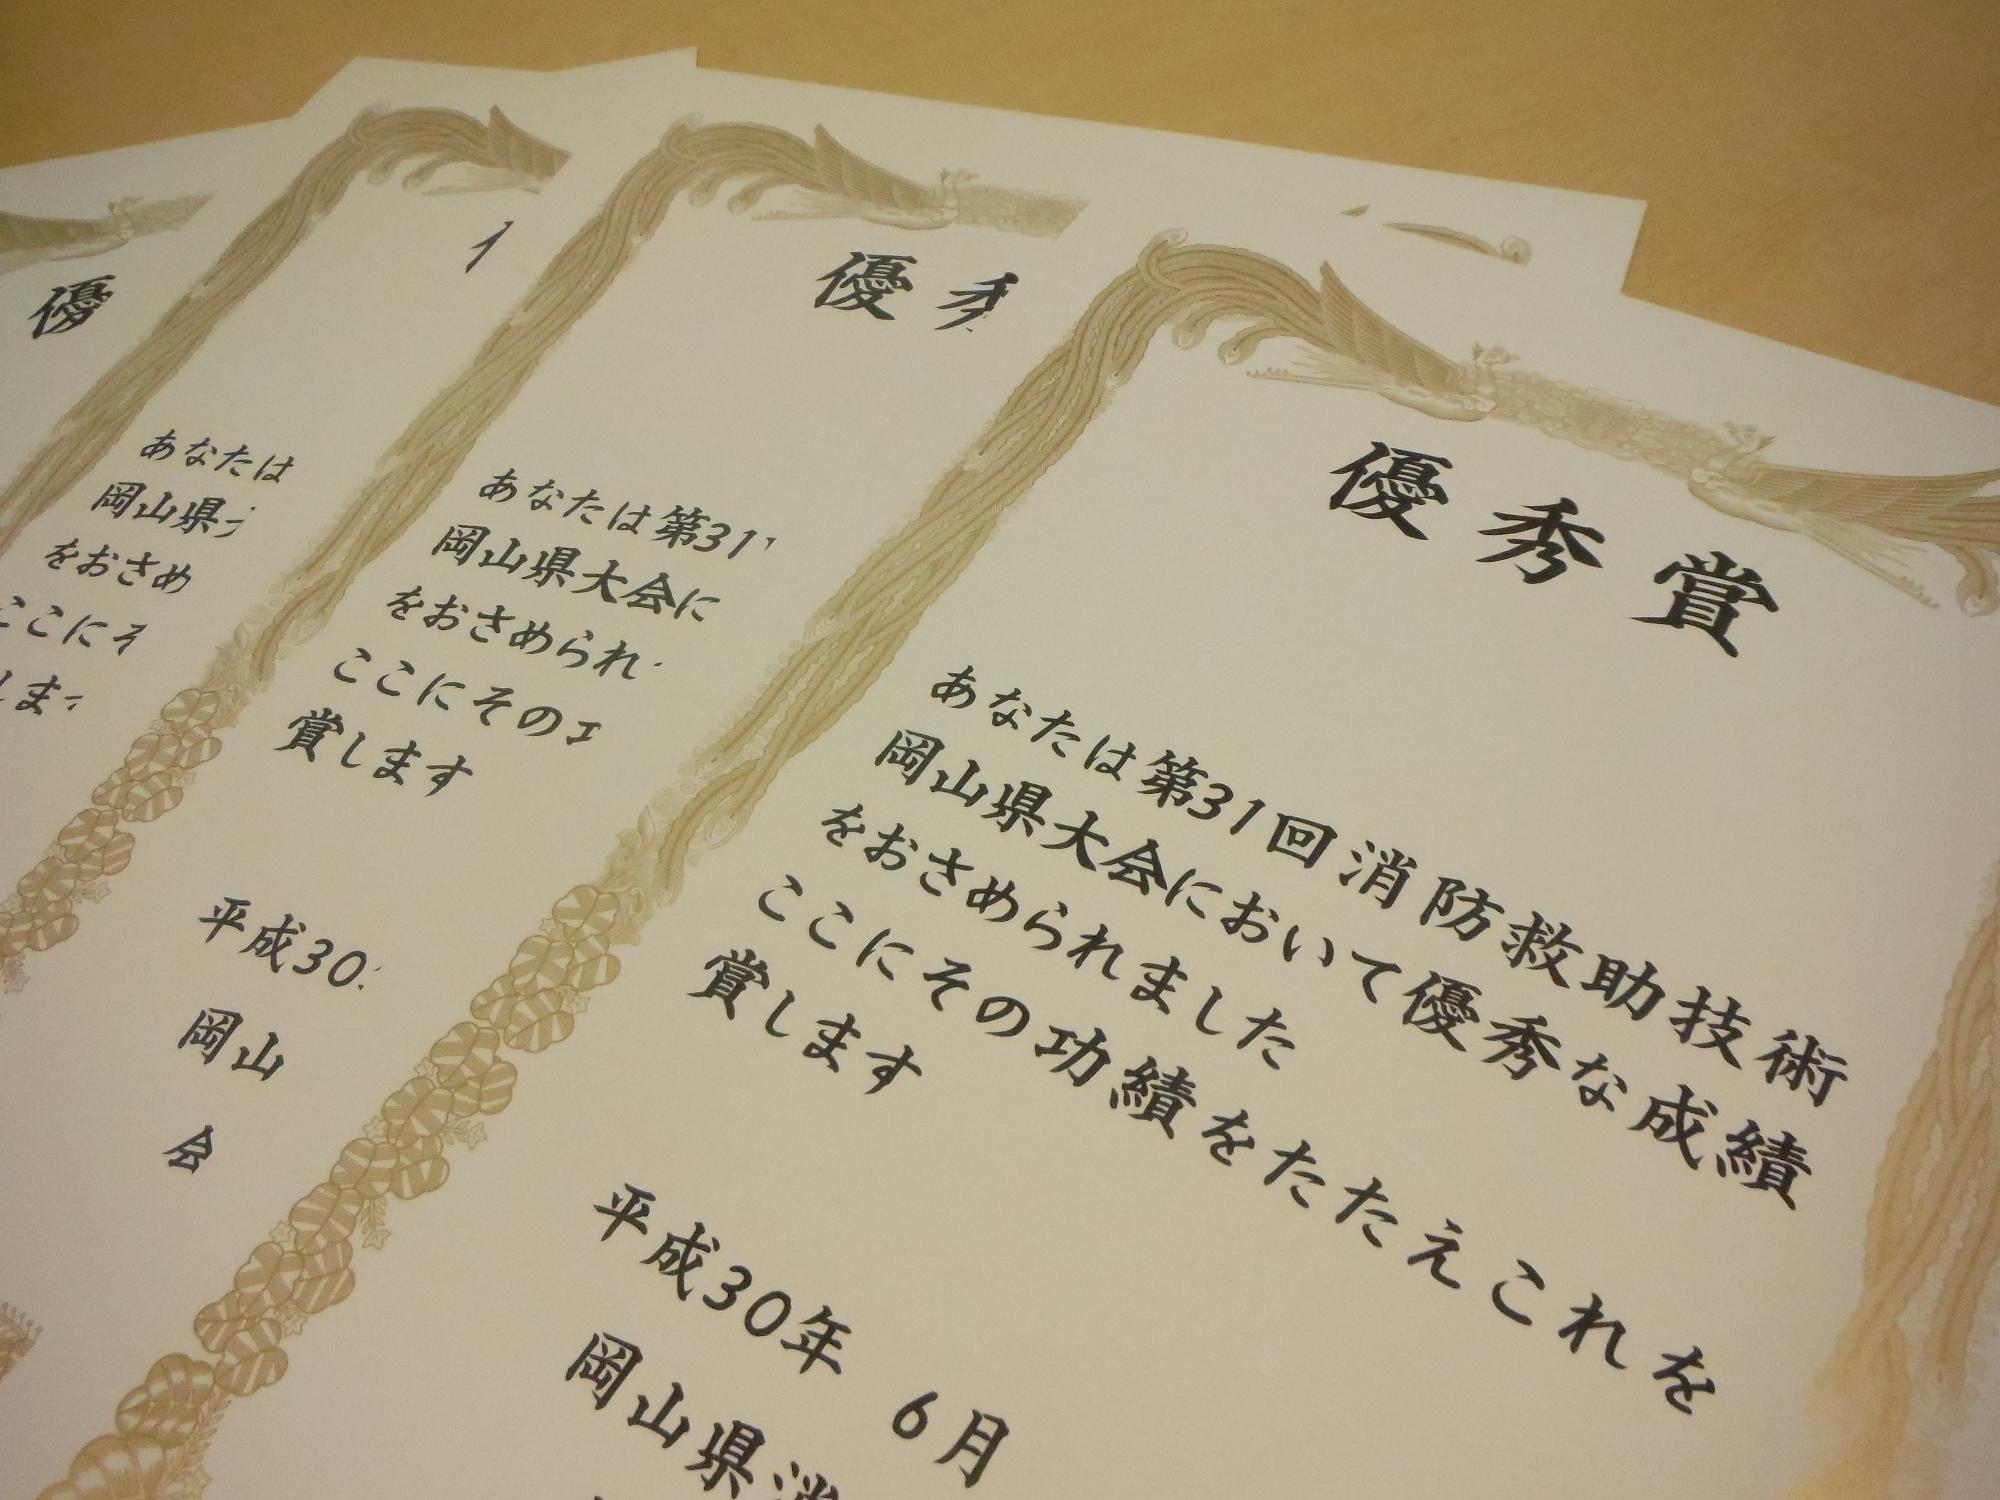 優
あなたは
岡山県
をおさめ
ここにそ
します
平成30
岡山
会
優秀
あなたは第31
岡山県大会に
をおさめられ
ここにその
賞します
優秀賞
あなたは第31回消防救助技術
岡山県大会において優秀な成績
をおさめられました
ここにその功績をたたえこれを
賞します
平成30年 6月
岡山県消